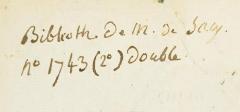 Biblioth. de M. de Sacy.
nº 1743 (2º) double.